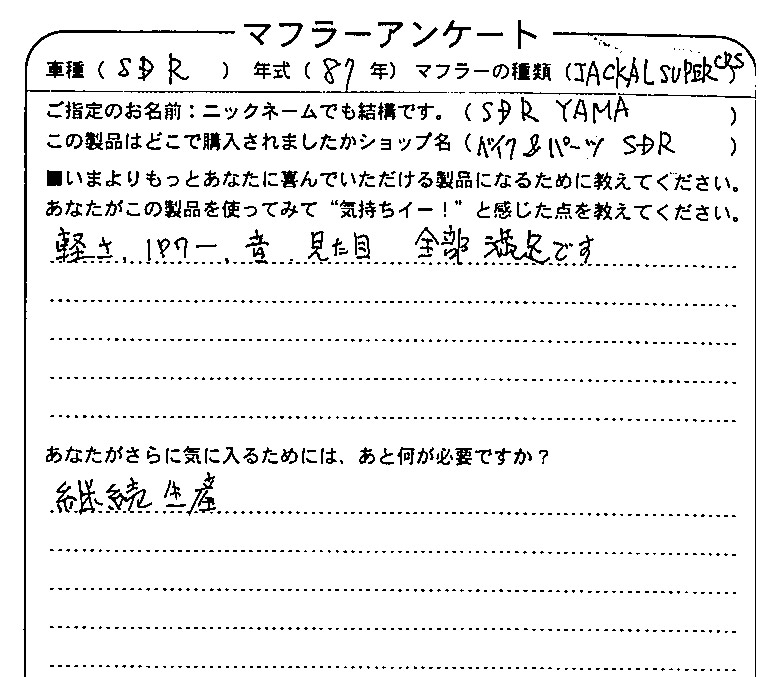 マフラーアンケート
車種 ( SDR ) 年式 ( 87 年) マフラーの種類 (JACKAL SUPER CRS)
ご指定のお名前：ニックネームでも結構です。( SDR YAMA )
この製品はどこで購入されましたかショップ名 ( バイク&パーツ SDR )
■いまよりもっとあなたに喜んでいただける製品になるために教えてください。
あなたがこの製品を使ってみて“気持ちイー！”と感じた点を教えてください。
軽さ、パワー、音 見た目 全部 満足です
あなたがさらに気に入るためには、あと何が必要ですか？
継続生産